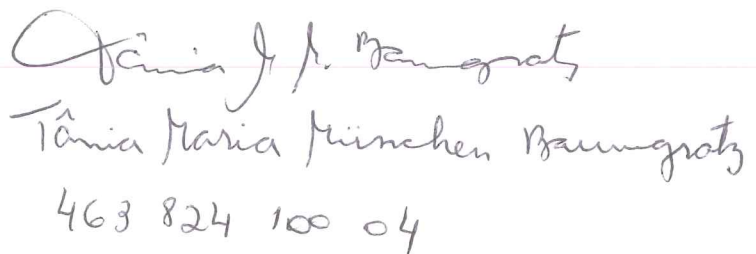 Tânia M M. Baumgratz
Tânia Maria München Baumgratz
463 824 100 04